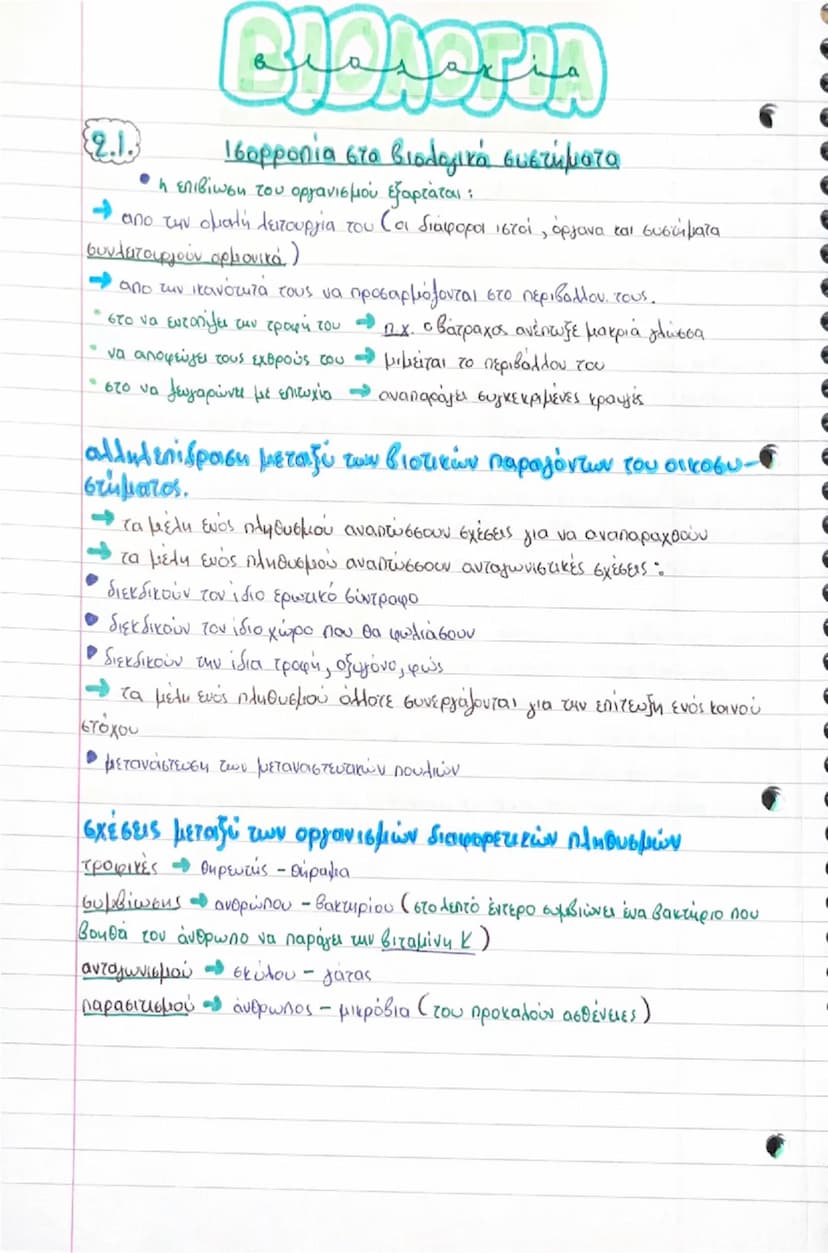 ΒΙΟΛΟΓΙΑ
βιολογία
2.1. Ισορροπία στα βιολογικά συστήματα
• η επιβίωση του οργανισμού εξαρτάται:
➔ απο την ομαλή λειτουργία του (οι διάφοροι ιστοί, όργανα και συστήματα
συνλειτουργούν αρμονικά)
➔ απο την ικανότητά τους να προσαρμόζονται στο περιβαλλον τους.
• στο να εντοπίζει την τροφή του ➔ π.χ. ο βάτραχος ανέπτυξε μακριά γλώσσα
• να αποφεύγει τους εχθρούς του ➔ μιμείται το περιβάλλον του
• στο να ζευγαρώνει με επιτυχία ➔ αναπαράγει συγκεκριμένες κραυγές
αλληλεπίδραση μεταξύ των βιοτικών παραγόντων του οικοσυ-
στήματος.
➔ τα μέλη ενός πληθυσμού αναπτύσσουν σχέσεις για να αναπαραχθούν
➔ τα μέλη ενός πληθυσμού αναπτύσσουν ανταγωνιστικές σχέσεις:
• διεκδικούν τον ίδιο ερωτικό σύντροφο
• διεκδικούν τον ίδιο χώρο που θα φωλιάσουν
• διεκδικούν την ίδια τροφή, οξυγόνο, φώς
➔ τα μέλη ενός πληθυσμού άλλοτε συνεργάζονται για την επίτευξη ενός κοινού
στόχου
• μετανάστευση των μεταναστευτικών πουλιών
σχέσεις μεταξύ των οργανισμών διαφορετικών πληθυσμών
τροφικές ➔ θηρευτής - θήραμα
συμβίωσης ➔ ανθρώπου - βακτηρίου (στο λεπτό έντερο συμβιώνει ένα βακτήριο που
βοηθά τον άνθρωπο να παράγει την βιταμίνη Κ)
ανταγωνισμού ➔ σκύλου - γάτας
παρασιτισμού ➔ άνθρωπος - μικρόβια (του προκαλούν ασθένειες)